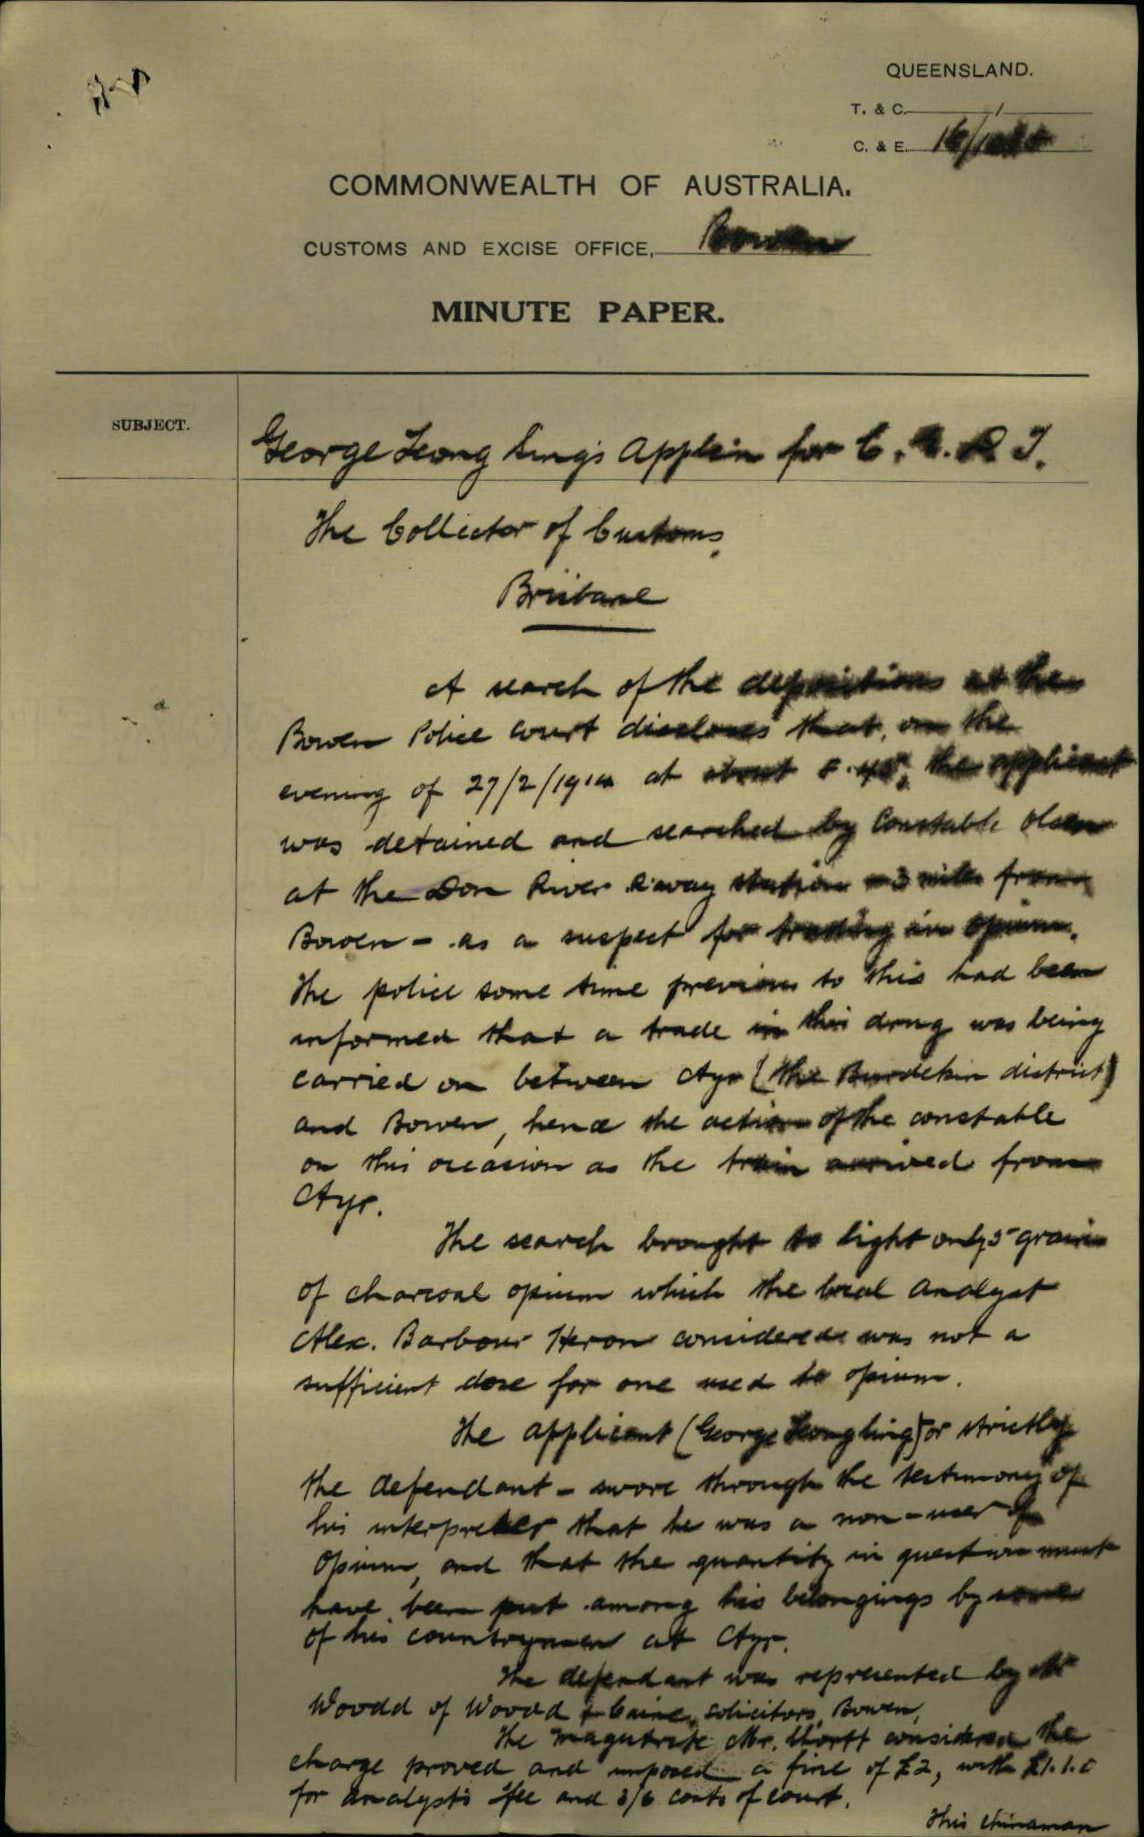 QUEENSLAND.
T. & C. /
C. & E. 16/
COMMONWEALTH OF AUSTRALIA.
CUSTOMS AND EXCISE OFFICE, Bowen
MINUTE PAPER.
SUBJECT.
George Leong Ling's Applcn for C. E. D. T.
The Collector of Customs,
Brisbane
A search of the depositions at the
Bowen Police Court discloses that, on the
evening of 27/2/1914 at about 8.45, the applicant
was detained and searched by Constable Olsen
at the Don River R'way station - 3 miles from
Bowen - as a suspect for trading in opium.
The police some time previous to this had been
informed that a trade in this drug was being
carried on between Ayr (the Burdekin district)
and Bowen, hence the action of the constable
on this occasion as the train arrived from
Ayr.
The search brought to light only 5 grains
of charcoal opium which the local analyst
Alex. Barbour Heron considered was not a
sufficient dose for one used to opium.
The applicant (George Leong Ling) or strictly
the defendant - swore through the testimony of
his interpreter that he was a non-user of
opium, and that the quantity in question must
have been put among his belongings by some
of his countrymen at Ayr.
The defendant was represented by Mr
Woodd of Woodd & Caine, solicitors, Bowen,
The magistrate Mr. considered the
charge proved and imposed a fine of £2, with £1.1.0
for analyst's fee and 3/6 costs of court.
This chinaman